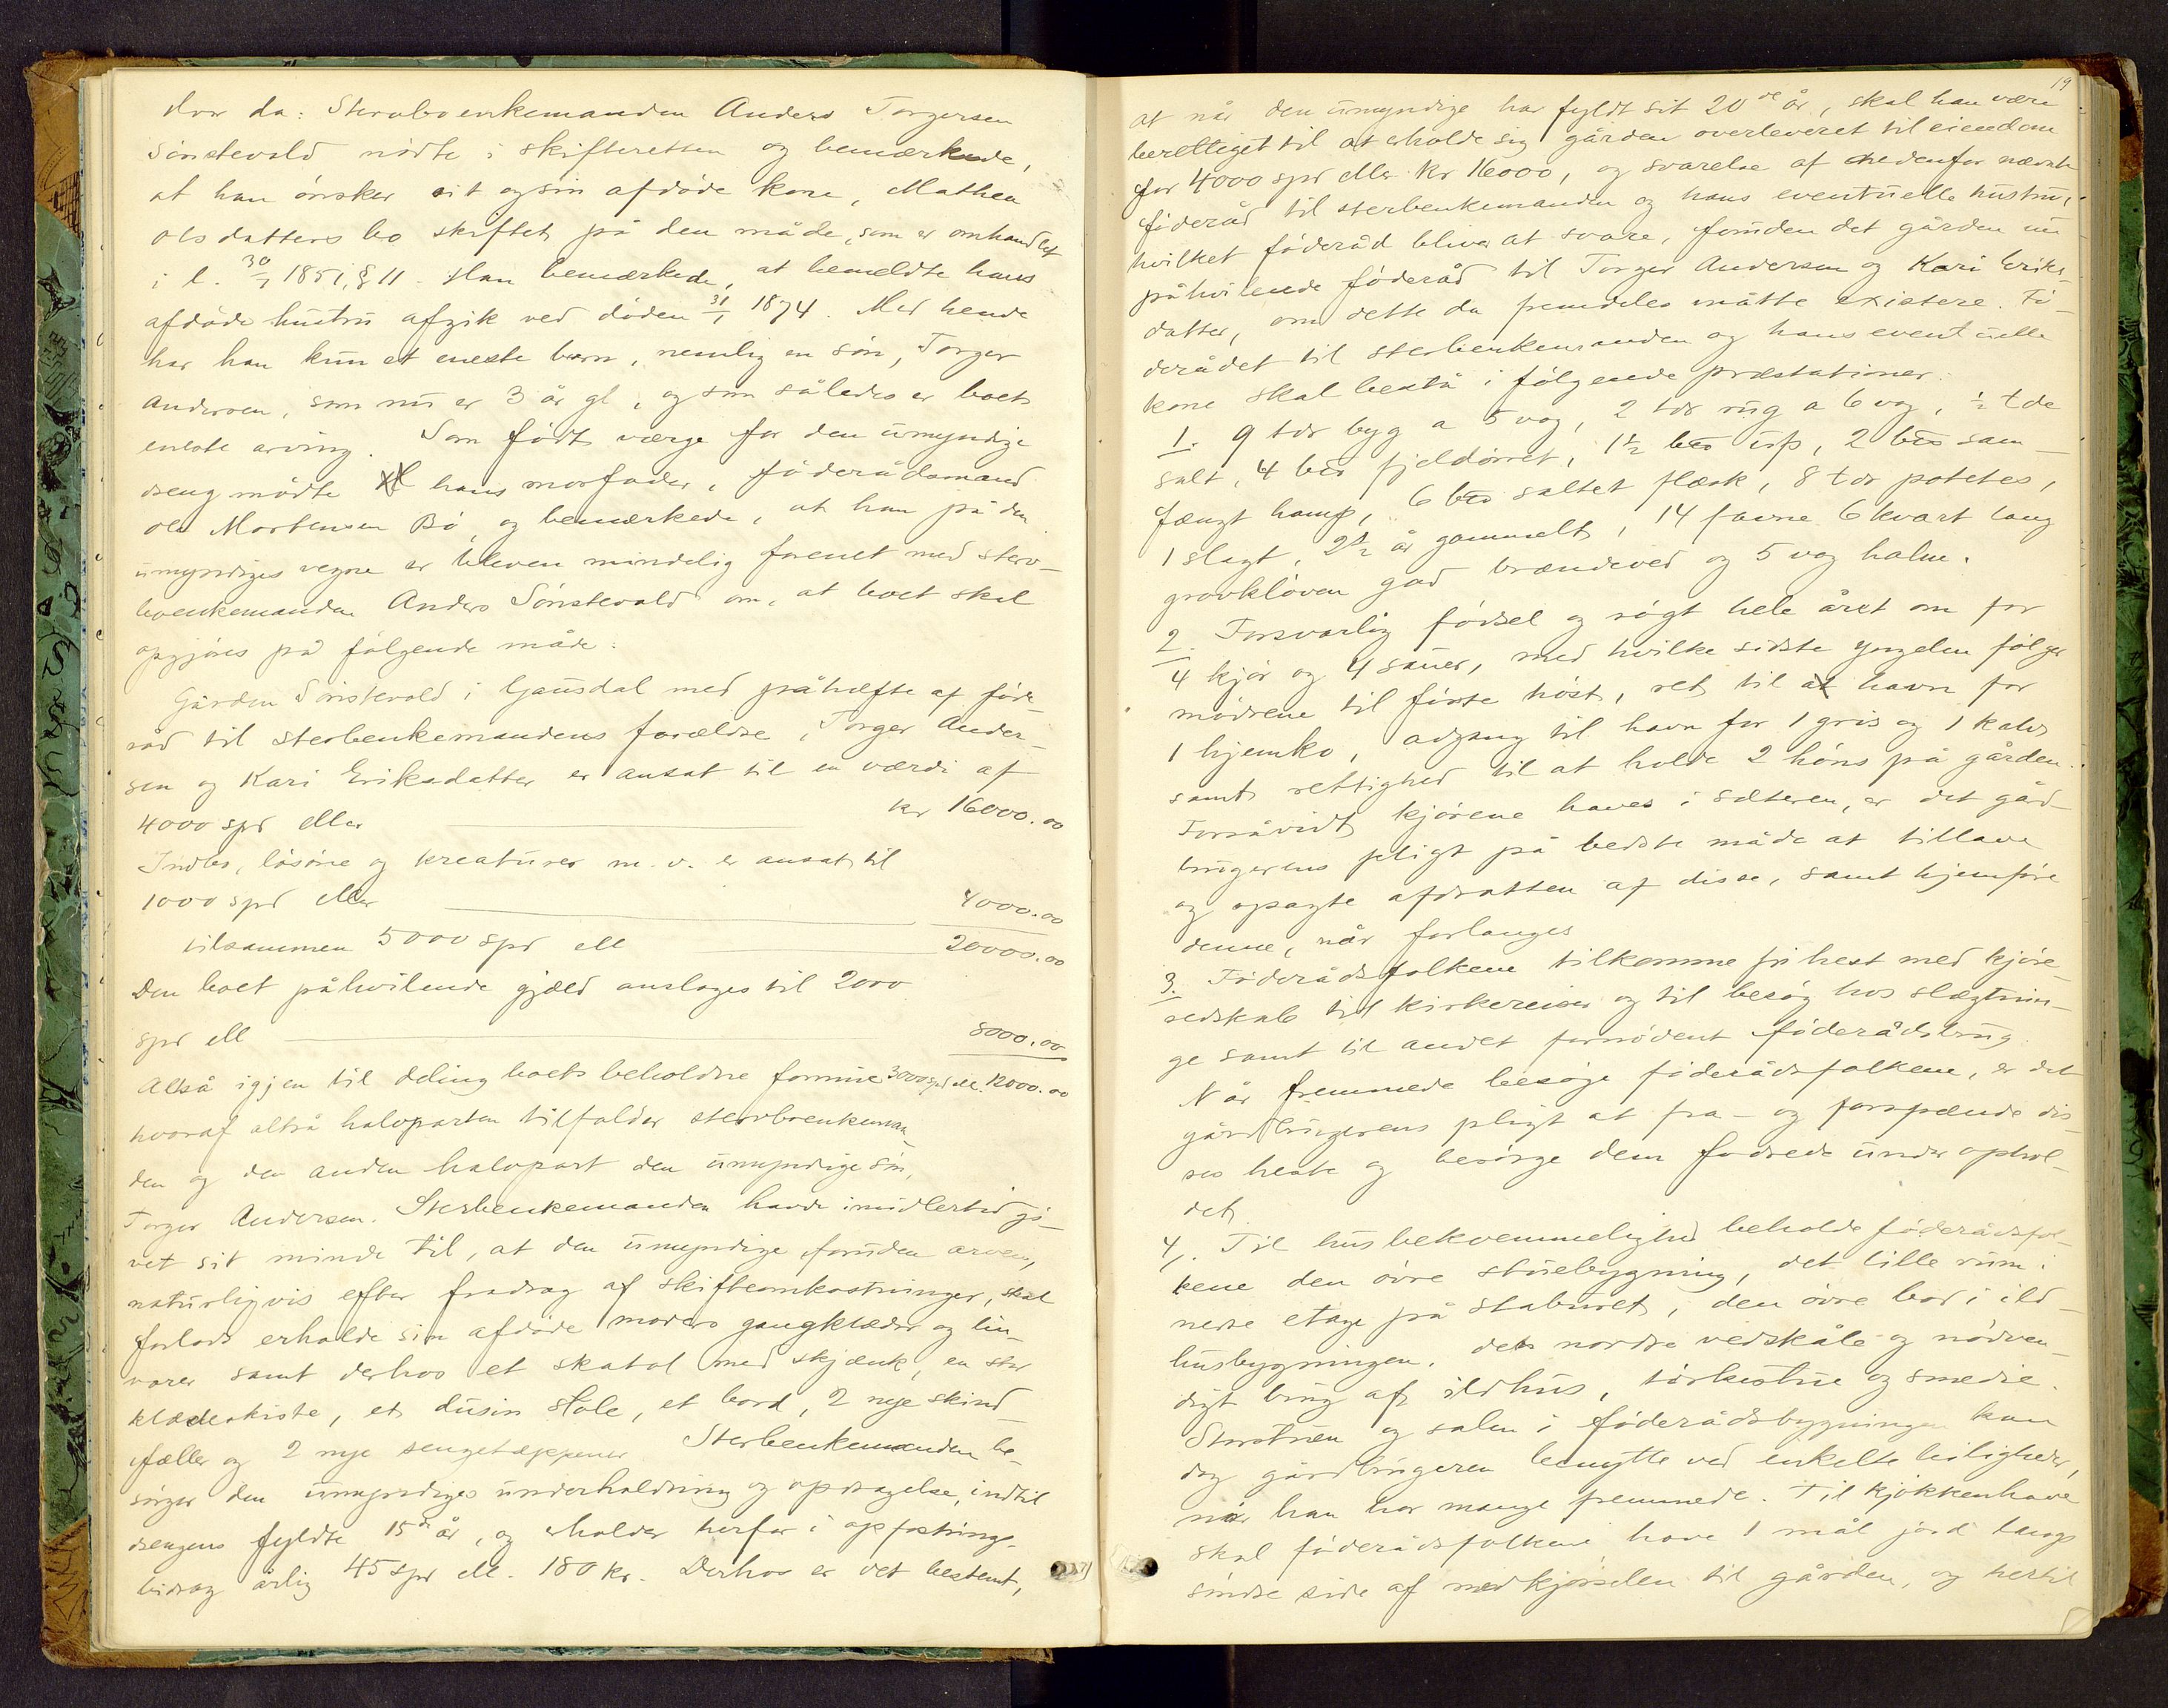 Hvor da: Stervboenkemanden Anders Torgersen
Sönstevold mödte i skifteretten og bemærkede,
at han önsker sit og sin afdöde kone, Mathea
Olsdatters bo skiftet på den måde, som er omhandlet
i l. 30/7 1851, § 11. Han bemærkede, at bemeldte hans
afdöde hustru afgik ved döden 31/1 1874. Med hende
har han kun et eneste barn, nemlig en sön, Torger
Andersen, som nu er 3 år gl, og som således er boets
eneste arving. Som født værge for den umyndige
dreng mödte hans morfader, föderådsmand
Ole Mortensen Bö, og bemærkede, at han på den
umyndiges vegne er bleven mindelig forenet med sterv-
boenkemanden Anders Sönstevold om, at boet skal
opgjöres på fölgende måde:
Gården Sönstevold i Gausdal med påhæfte af föde-
råd til sterbenkemandens forældre, Torger Ander-
sen og Kari Eriksdatter er ansat til en værdi af
4000 spd eller kr 16000.00
Indbo, lösöre og kreaturer m. v. er ansat til
1000 spd eller 4000.00
tilsammen 5000 spd ell 20000.00
Den boet påhvilende gjæld anslages til 2000
spd ell 8000.00
Altså igjen til deling boets beholdne formue 3000 spd ell. 12000.00
hvoraf altså halvparten tilfalder stervboenkeman-
den og den anden halvpart den umyndige sön,
Torger Andersen. Sterbenkemanden havde imidlertid gi-
vet sit minde til, at den umyndige foruden arven,
naturligvis efter fradrag af skifteomkostninger, skal
forlods erholde sin afdöde moders gangklæder og lin-
varer samt derhos et skatol med skjænk, en stor
klædeskiste, et dusin stole, et bord, 2 nye skind-
fæller og 2 nye sengetæppener. Sterbenkemanden be-
sörger den umyndiges underholdning og opdragelse, indtil
drengens fyldte 15de år, og erholder herfor i opfostrings-
bidrag årlig 45 spd ell. 180 kr. Derhos er det bestemt,
19
at når den umyndige har fyldt sit 20de år, skal han være
berettiget til at erholde sig gården overleveret til eiendom
for 4000 spd eller kr 16000, og svarelse af nedenfor nævnte
föderåd til sterbenkemanden og hans eventuelle hustru,
hvilket föderåd bliver at svare, foruden det gården nu
påhvilende föderåd til Torger Andersen og Kari Eriks-
datter, om dette da fremdeles måtte existere. Fö-
derådet til sterbenkemanden og hans eventuelle
kone skal bestå i fölgende præstationer:
1. 9 tdr byg a 5 vog, 2 tdr rug a 6 vog, ½ tde
salt, 4 bes fjeldörret, 1½ bes usp, 2 bes sam-
fængt hamp, 6 bes saltet flæsk, 8 tdr potetes,
1 slagt, 2½ år gammelt, 14 favne 6 kvart lang
grovklöven god brændeved og 5 vog halm.
2. Forsvarlig födsel og rögt hele året om for
4 kjör og 4 sauer, med hvilke sidste yngelen fölger
mödrene til förste höst, ret til havn for
1 hjemko, adgang til havn for 1 gris og 1 kalv
samt rettighed til at holde 2 höns på gården.
Forsåvidt kjörene haves i sæteren, er det gård-
brugerens pligt på bedste måde at tillave
og opagte afdrotten af disse, samt hjemföre
denne, når forlanges
3. Föderådsfolkene tilkomme fri hest med kjöre-
redskab til kirkereiser og til besög hos slægtnin-
ge samt til andet fornödent föderådsbrug.
Når fremmede besöge föderådsfolkene, er det
gårdbrugerens pligt at fra- og forspænde dis-
ses heste og besörge dem fodrede under ophol-
det.
4. Til husbekvemmelighed beholde föderådsfol-
kene den övre stuebygning, det lille rum i
nedre etage på stabburet, den övre bod i ild-
husbygningen, den nordre vedskåle og nödven-
digt brug af ildhus, törkestue og smedie.
Storstuen og salen i föderådsbygningen kan
dog gårdbrugeren benytte ved enkelte leiligheder,
når han har mange fremmede. Til kjökkenhave
skal föderådsfolkene have 1 mål jord langs
söndre side af nedkjörselen til gården, og hertil